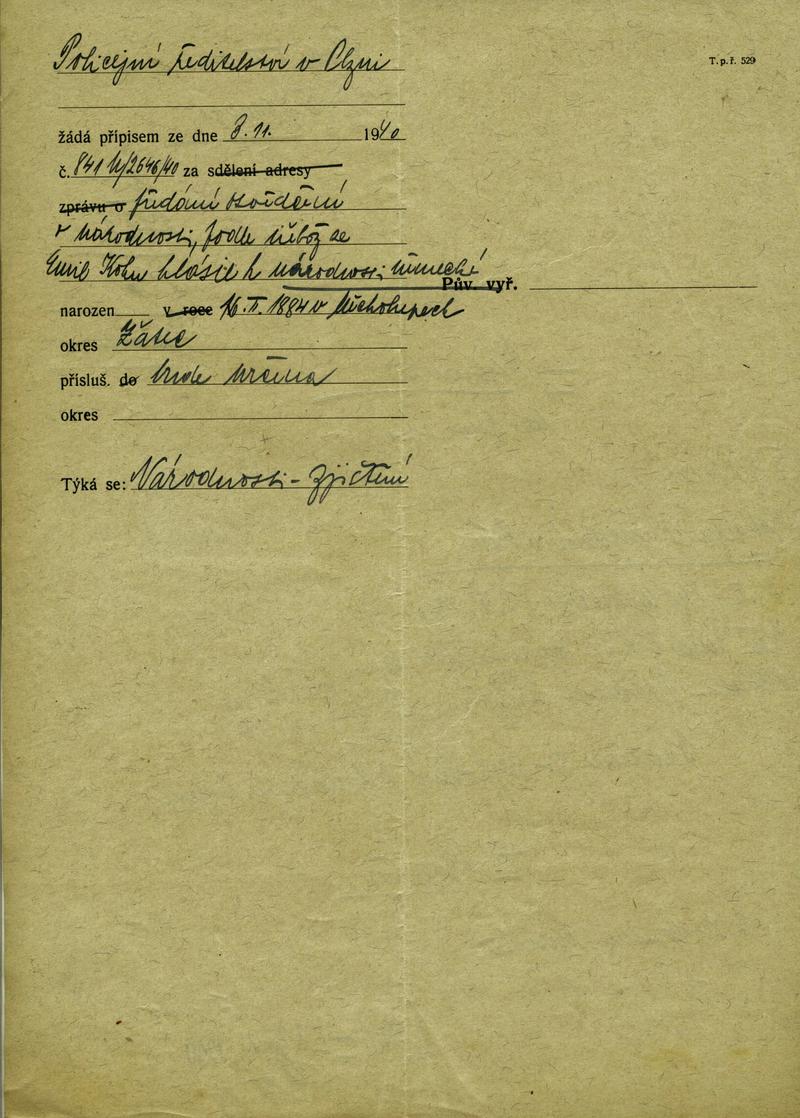 T. p. ř. 529
Policejní ředitelství v Plzni
žádá přípisem ze dne 8. 11. 1940
č. 841 /2646/40 za sdělení adresy
zprávu o
v národnosti, podle něhož se
Emil Kohn hlásil k národnosti německé
Pův. vyř.
narozen v roce 16. II. 1884 v Měcholupech
okres Žatec
přísluš. do bude
okres
Týká se: Národnosti - zjištění